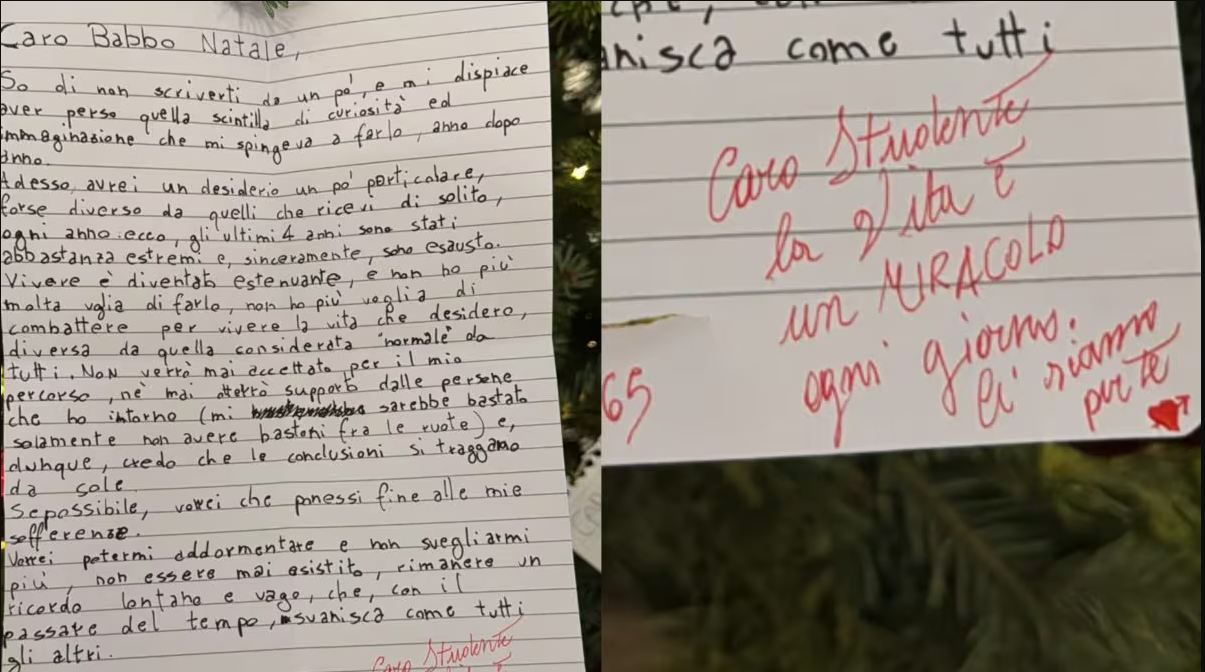 Caro Babbo Natale,
So di non scriverti da un po', e mi dispiace
aver perso quella scintilla di curiosità ed
immaginazione che mi spingeva a farlo, anno dopo
anno.
Adesso, avrei un desiderio un po' particolare,
forse diverso da quelli che ricevi di solito,
ogni anno: ecco, gli ultimi 4 anni sono stati
abbastanza estremi e, sinceramente, sono esausto.
Vivere è diventato estenuante, e non ho più
molta voglia di farlo, non ho più voglia di
combattere per vivere la vita che desidero,
diversa da quella considerata "normale" da
tutti. Non verrò mai accettato per il mio
percorso, nè mai otterrò supporto dalle persone
che ho intorno (mi sarebbe bastato
solamente non avere bastoni fra le ruote) e,
dunque, credo che le conclusioni si traggano
da sole.
Se possibile, vorrei che ponessi fine alle mie
sofferenze.
Vorrei potermi addormentare e non svegliarmi
più, non essere mai esistito, rimanere un
ricordo lontano e vago, che, con il
passare del tempo, svanisca come tutti
gli altri.
Caro Studente
anisca come tutti
Caro Studente
la Vita è
un MIRACOLO
ogni giorno.
Ci siamo
per te
65